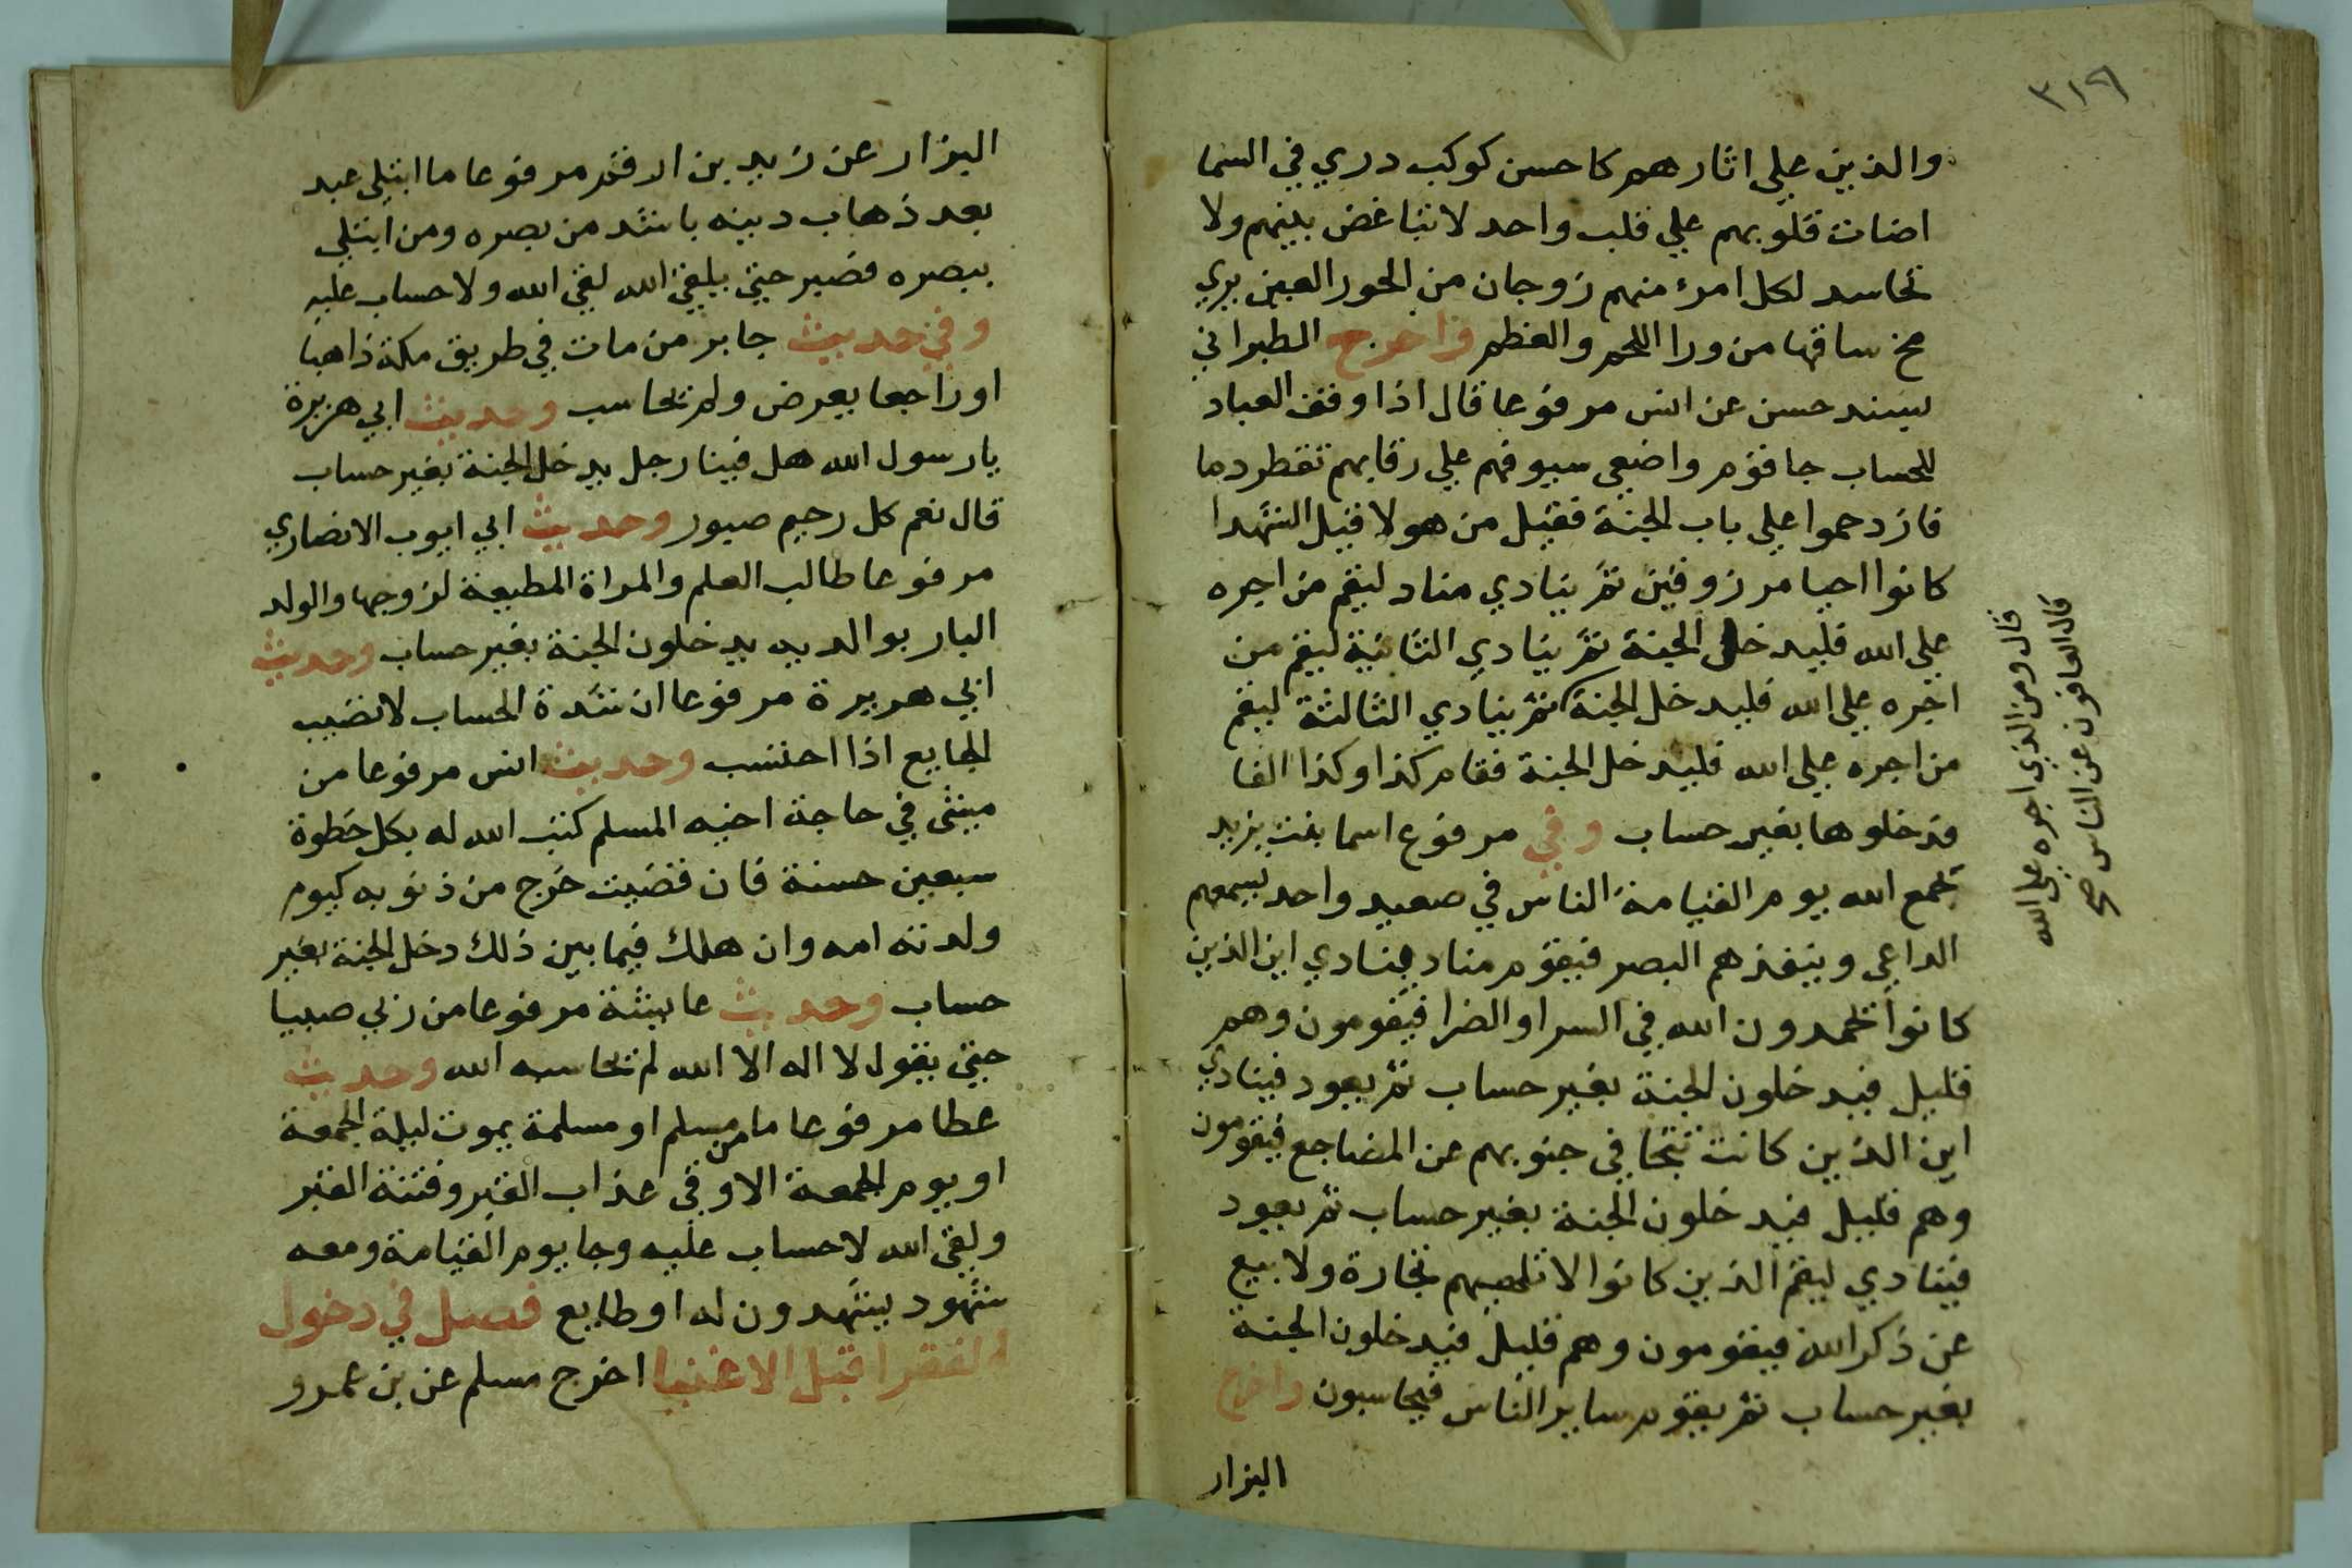 ٣١٩
والذين علي اثارهم كاحسن كوكب دري في السما
اضات قلوبهم علي قلب واحد لا تباغض بينهم ولا
تحاسد لكل امرء منهم زوجان من الحور العين يري
مخ ساقها من ورا اللحم والعظم واخرج الطبراني
بسند حسن عن انس مرفوعا قال اذا وقف العباد
للحساب جا قوم واضعي سيوفهم علي رقابهم تقطر دما
فازدحموا علي باب الجنة فقيل من هولا قيل الشهدا
كانوا احيا مرزوقين ثم ينادي مناد ليقم من اجره
علي الله فليدخل الجنة ثم ينادي الثانية ليقم من
اجره علي الله فليدخل الجنة ثم ينادي الثالثة ليقم
من اجره علي الله فليدخل الجنة فقام كذا وكذا الفا
فدخلوها بغير حساب وفي مرفوع اسما بنت يزيد
يجمع الله يوم القيامة الناس في صعيد واحد يسمعهم
الداعي وينفذهم البصر فيقوم مناد فينادي اين الذين
كانوا يحمدون الله في السرا والضرا فيقومون وهم
قليل فيدخلون الجنة بغير حساب ثم يعود فينادي
اين الذين كانت تتجافي جنوبهم عن المضاجع فيقومون
وهم قليل فيدخلون الجنة بغير حساب ثم يعود
فينادي ليقم الذين كانوا لا تلهيهم تجارة ولا بيع
عن ذكر الله فيقومون وهم قليل فيدخلون الجنة
بغير حساب ثم يقوم ساير الناس فيحاسبون واخرج
البزار
قال ومن الذي اجره علي الله
قال العافون عن الناس صح
البزار عن زيد بن ارقم مرفوعا ما ابتلي عبد
بعد ذهاب دينه باشد من بصره ومن ابتلي
ببصره فصبر حتي يلقي الله لقي الله ولا حساب عليه
وفي حديث جابر من مات في طريق مكة ذاهبا
او راجعا يعرض ولم يحاسب وحديث ابي هريرة
يا رسول الله هل فينا رجل يدخل الجنة بغير حساب
قال نعم كل رحيم صبور وحديث ابي ايوب الانصاري
مرفوعا طالب العلم والمراة المطيعة لزوجها والولد
البار بوالديه يدخلون الجنة بغير حساب وحديث
ابي هريرة مرفوعا ان شدة الحساب لا تصيب
الجايع اذا احتسب وحديث انس مرفوعا من
مشي في حاجة اخيه المسلم كتب الله له بكل خطوة
سبعين حسنة فان قضيت خرج من ذنوبه كيوم
ولدته امه وان هلك فيما بين ذلك دخل الجنة بغير
حساب وحديث عايشة مرفوعا من ربي صبيا
حتي يقول لا اله الا الله لم يحاسبه الله وحديث
عطا مرفوعا ما من مسلم او مسلمة يموت ليلة الجمعة
او يوم الجمعة الا وقي عذاب القبر وفتنة القبر
ولقي الله لا حساب عليه وجا يوم القيامة ومعه
شهود يشهدون له او طابع فصل في دخول
الفقرا قبل الاغنيا اخرج مسلم عن بن عمرو